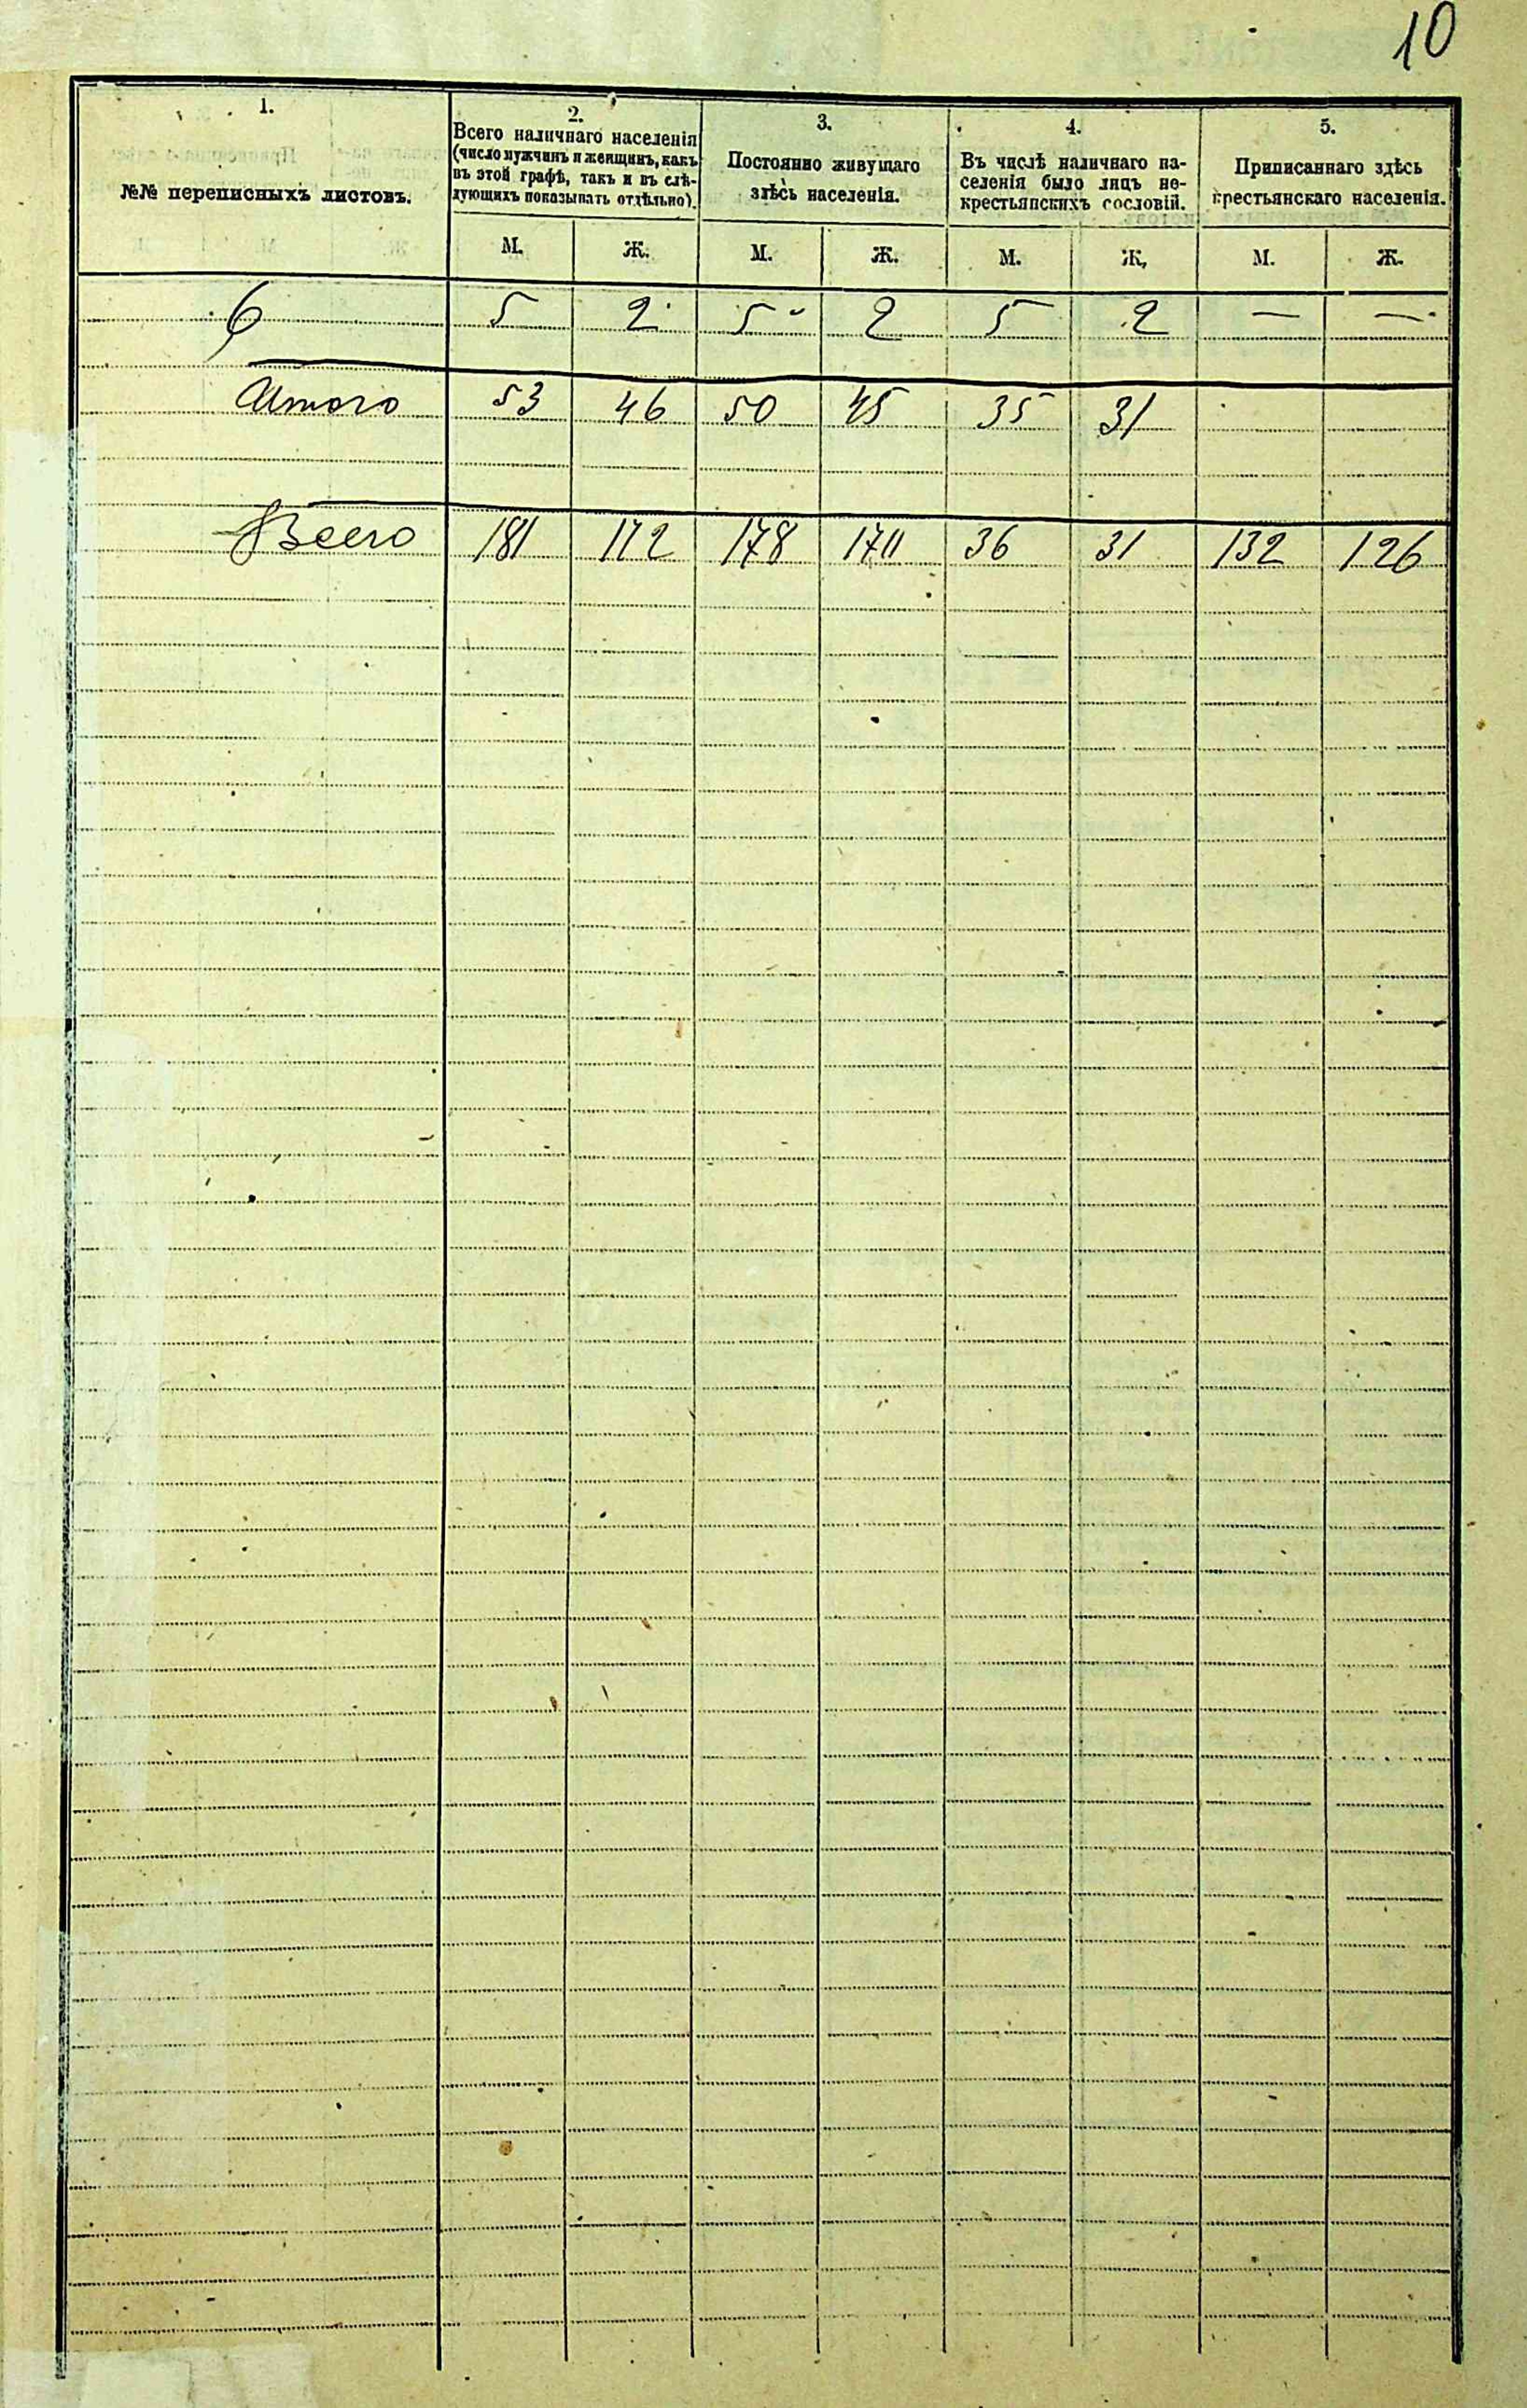 10
1.
№№ переписныхъ листовъ.
2.
Всего наличнаго населенія
(число мужчинъ и женщинъ, какъ
въ этой графѣ, такъ и въ слѣ-
дующихъ показывать отдѣльно).
3.
Постоянно живущаго
здѣсь населенія.
4.
Въ числѣ наличнаго на-
селенія было лицъ не-
крестьянскихъ сословій.
5.
Приписаннаго здѣсь
крестьянскаго населенія.
М. Ж. М. Ж. М. Ж. М. Ж.
6 5 2 5 2 5 2 — —
Итого 53 46 50 45 35 31
Всего 181 172 178 170 36 31 132 126